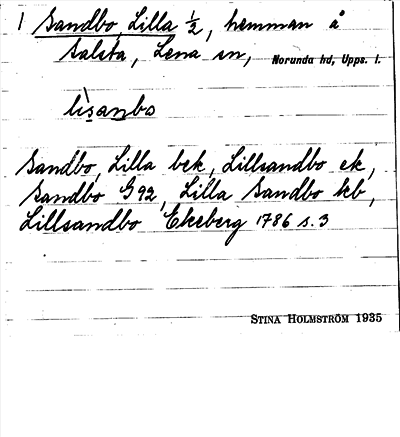 1 Sandbo, Lilla 1/2, hemman å
Salsta, Lena sn, Norunda hd, Upps. l.
lìsanbo
Sandbo, Lilla bek, Lillsandbo ek,
Sandbo G 92, Lilla Sandbo kb,
Lillsandbo Ekeberg 1786 s. 3
STINA HOLMSTRÖM 1935